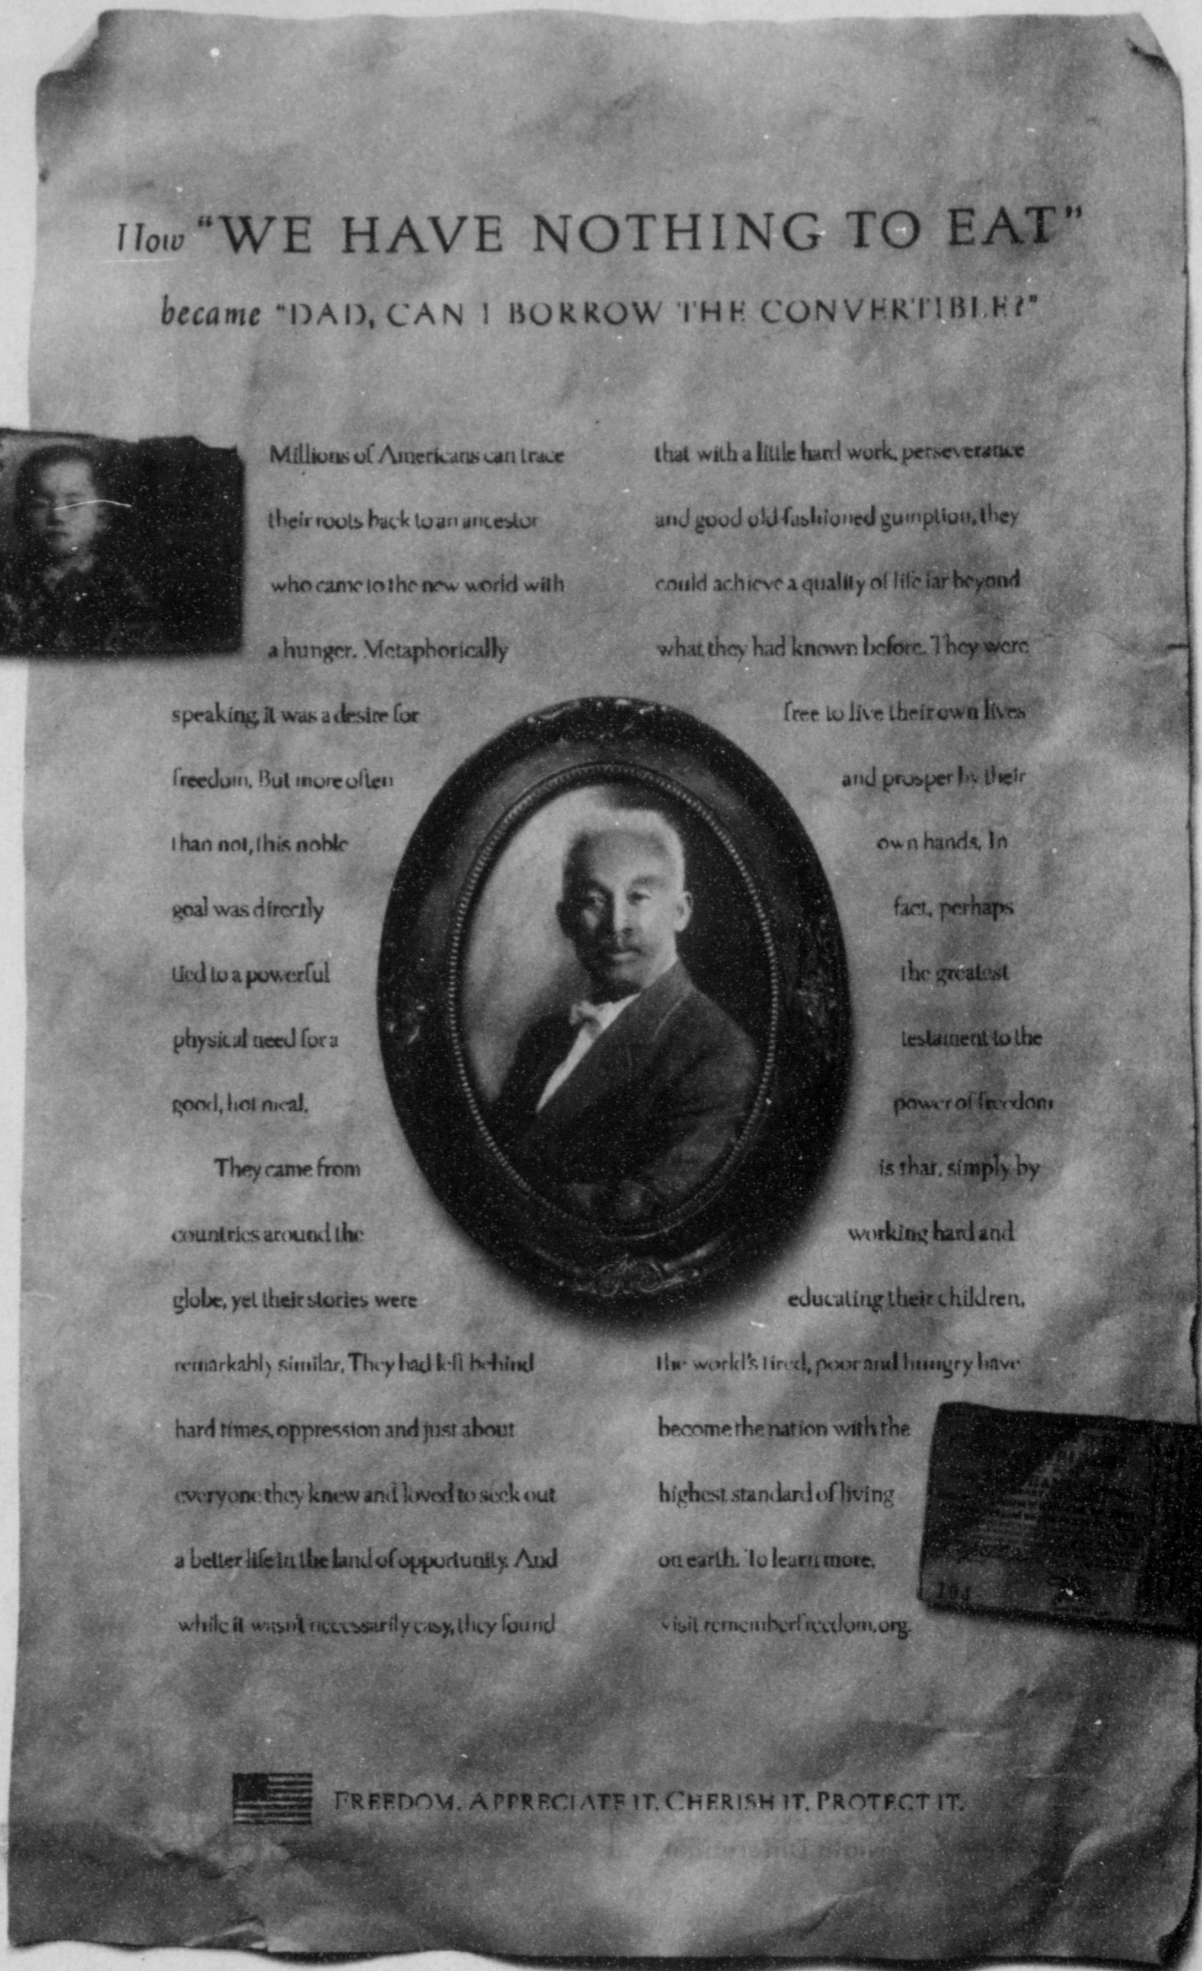 How "WE HAVE NOTHING TO EAT"
became "DAD, CAN I BORROW THE CONVERTIBLE?"
Millions of Americans can trace
their roots back to an ancestor
who came to the new world with
a hunger. Metaphorically
speaking, it was a desire for
freedom. But more often
than not, this noble
goal was directly
tied to a powerful
physical need for a
good, hot meal.
They came from
countries around the
globe, yet their stories were
remarkably similar. They had left behind
hard times, oppression and just about
everyone they knew and loved to seek out
a better life in the land of opportunity. And
while it wasn't necessarily easy, they found
that with a little hard work, perseverance
and good old-fashioned gumption, they
could achieve a quality of life far beyond
what they had known before. They were
free to live their own lives
and prosper by their
own hands. In
fact, perhaps
the greatest
testament to the
power of freedom
is that, simply by
working hard and
educating their children,
the world's tired, poor and hungry have
become the nation with the
highest standard of living
on earth. To learn more,
visit rememberfreedom.org.
FREEDOM. APPRECIATE IT. CHERISH IT. PROTECT IT.